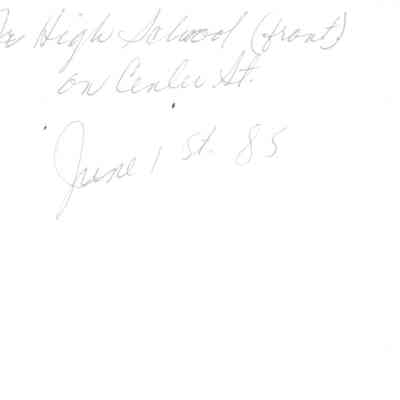 High School (front)
on Center St.
June 1 St. 85